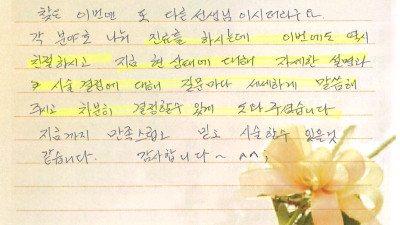 찾은 이번엔 또 다른 선생님이시더라구요
각 분야로 나눠 진료를 하시는데 이번에도 역시
친절하시고 지금 현 상태에 대해 자세한 설명과
시술 결정에 대해 질문마다 세세하게 말씀해
주시고 차분히 결정할수 있게 도와주셨습니다
지금까지 만족스럽고 믿고 시술할수 있을것
같습니다. 감사합니다~ ^^;